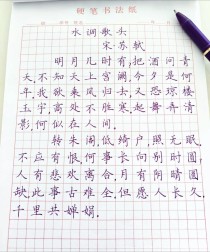 硬笔书法纸
水调歌头
宋苏轼
明月几时有,把酒问青
天。不知天上宫阙,今夕是何
年。我欲乘风归去,又恐琼楼
玉宇,高处不胜寒。起舞弄清
影,何似在人间。
转朱阁,低绮户,照无眠。
不应有恨,何事长向别时圆,
人有悲欢离合,月有阴晴圆
缺,此事古难全。但愿人长久,
千里共婵娟。